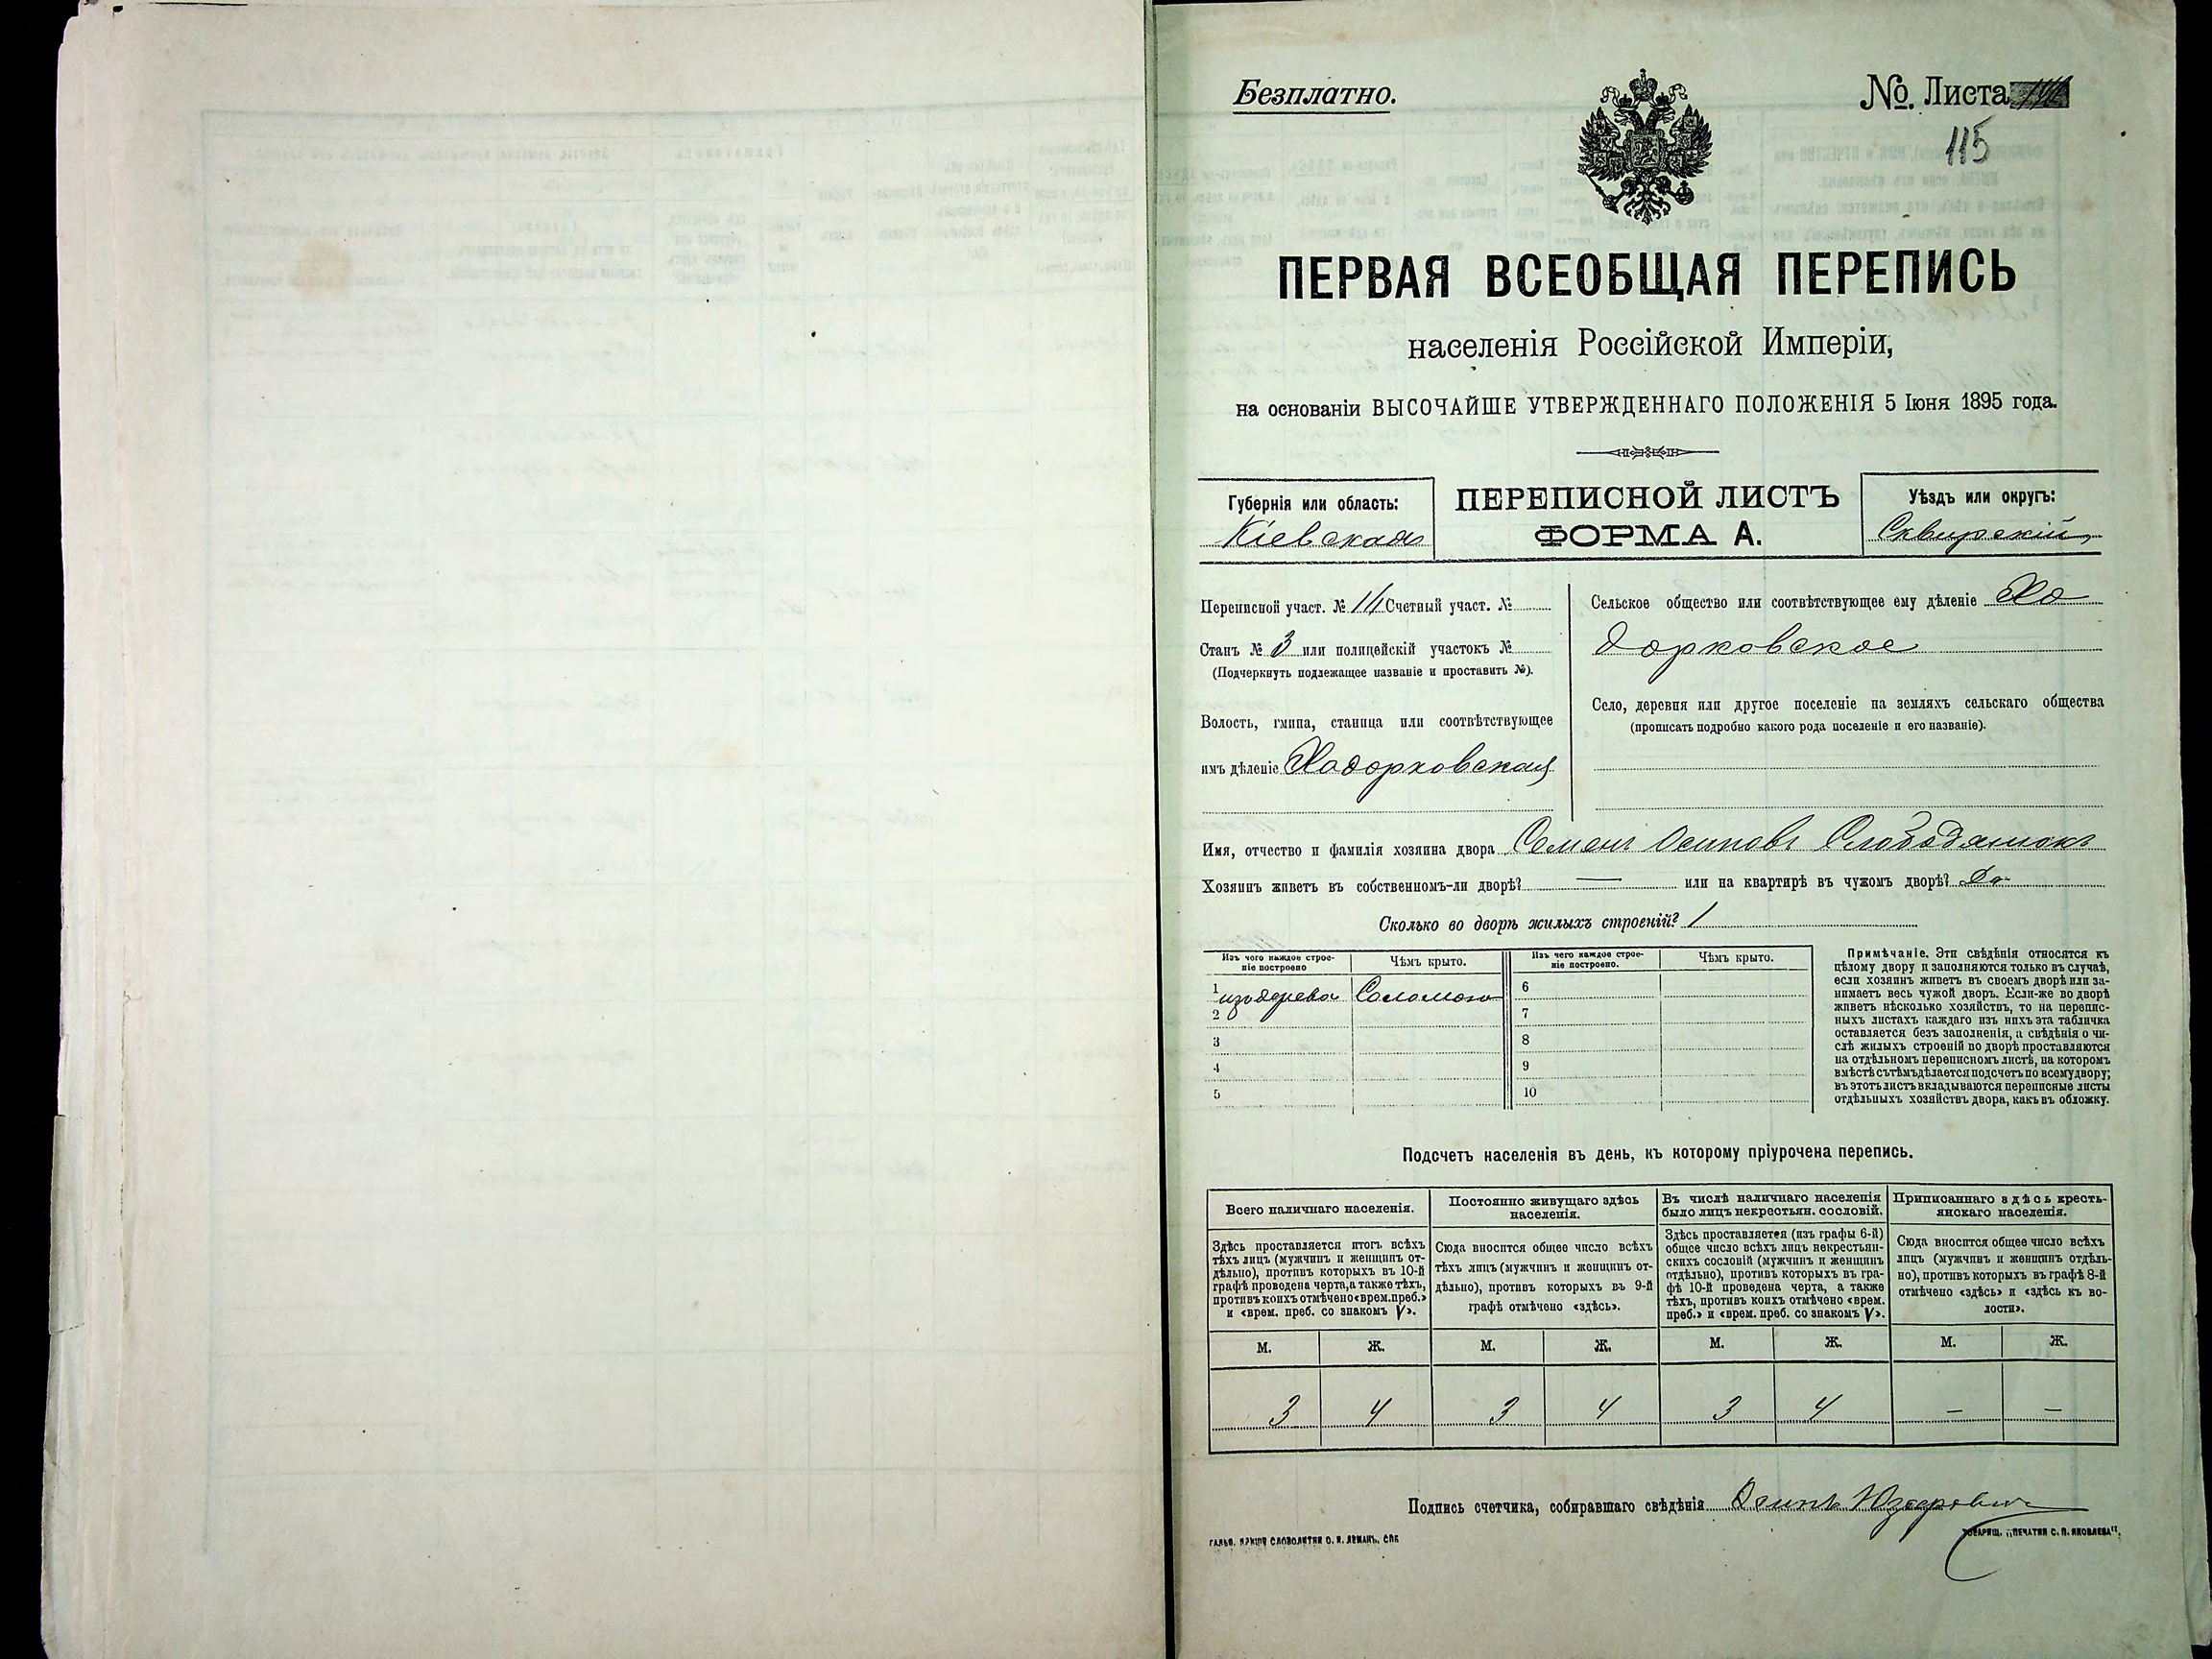 Безплатно.
№ Листа
115
ПЕРВАЯ ВСЕОБЩАЯ ПЕРЕПИСЬ
населенія Россійской Имперіи,
на основаніи ВЫСОЧАЙШЕ УТВЕРЖДЕННАГО ПОЛОЖЕНІЯ 5 Іюня 1895 года.
Губернія или область:
Кіевская
ПЕРЕПИСНОЙ ЛИСТЪ
ФОРМА А.
Уѣздъ или округъ:
Сквирскій
Переписной участ. № 14 Счетный участ. №
Станъ № 3 или полицейскій участокъ №
(Подчеркнуть подлежащее названіе и проставить №).
Волость, гмина, станица или соотвѣтствующее
имъ дѣленіе Ходорковская
Сельское общество или соотвѣтствующее ему дѣленіе Хо
дорковское
Село, деревня или другое поселеніе на земляхъ сельскаго общества
(прописать подробно какого рода поселеніе и его названіе).
Имя, отчество и фамилія хозяина двора Семенъ Осиповъ Слободянюкъ
Хозяинъ живетъ въ собственномъ-ли дворѣ? — или на квартирѣ въ чужомъ дворѣ? Да
Сколько во дворѣ жилыхъ строеній? 1
Изъ чего каждое строе-
ніе построено
Чѣмъ крыто.
Изъ чего каждое строе-
ніе построено.
Чѣмъ крыто.
1 изъ дерева Соломою 6
2 7
3 8
4 9
5 10
Примѣчаніе. Эти свѣдѣнія относятся къ
цѣлому двору и заполняются только въ случаѣ,
если хозяинъ живетъ въ своемъ дворѣ или за-
нимаетъ весь чужой дворъ. Если-же во дворѣ
живетъ нѣсколько хозяйствъ, то на перепис-
ныхъ листахъ каждаго изъ нихъ эта табличка
оставляется безъ заполненія, а свѣдѣнія о чи-
слѣ жилыхъ строеній во дворѣ проставляются
на отдѣльномъ переписномъ листѣ, на которомъ
вмѣстѣ съ тѣмъ дѣлается подсчетъ по всему двору;
въ этотъ листъ вкладываются переписные листы
отдѣльныхъ хозяйствъ двора, какъ въ обложку.
Подсчетъ населенія въ день, къ которому пріурочена перепись.
Всего наличнаго населенія.
Здѣсь проставляется итогъ всѣхъ
тѣхъ лицъ (мужчинъ и женщинъ от-
дѣльно), противъ которыхъ въ 10-й
графѣ проведена черта, а также тѣхъ,
противъ коихъ отмѣчено «врем. преб.»
и «врем. преб. со знакомъ V».
Постоянно живущаго здѣсь
населенія.
Сюда вносится общее число всѣхъ
тѣхъ лицъ (мужчинъ и женщинъ от-
дѣльно), противъ которыхъ въ 9-й
графѣ отмѣчено «здѣсь».
Въ числѣ наличнаго населенія
было лицъ некрестьян. сословій.
Здѣсь проставляется (изъ графы 6-й)
общее число всѣхъ лицъ некрестьян-
скихъ сословій (мужчинъ и женщинъ
отдѣльно), противъ которыхъ въ гра-
фѣ 10-й проведена черта, а также
тѣхъ, противъ коихъ отмѣчено «врем.
преб.» и «врем. преб. со знакомъ V».
Приписаннаго здѣсь кресть-
янскаго населенія.
Сюда вносится общее число всѣхъ
лицъ (мужчинъ и женщинъ отдѣль-
но), противъ которыхъ въ графѣ 8-й
отмѣчено «здѣсь» и «здѣсь къ во-
лости».
М. Ж. М. Ж. М. Ж. М. Ж.
3 4 3 4 3 4 — —
Подпись счетчика, собиравшаго свѣдѣнія Осипъ
ТОВАРИЩ. „ПЕЧАТНЯ С. П. ЯКОВЛЕВА".